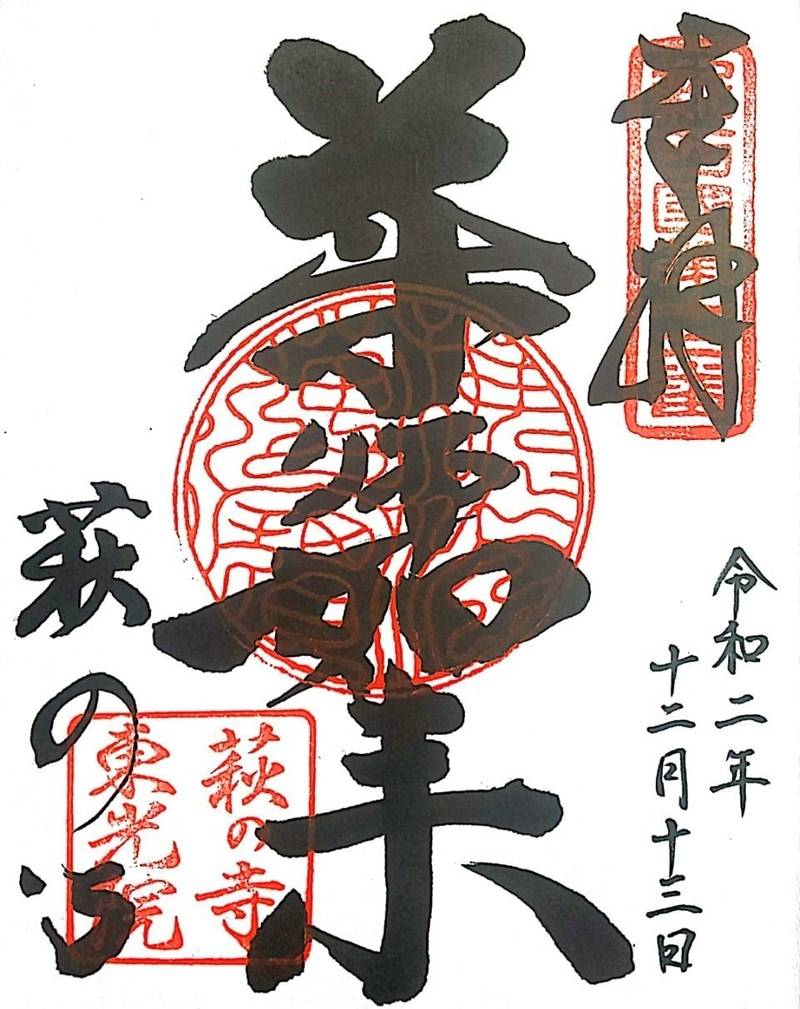 奉拝
令和二年
十二月十三日
薬師如来
萩の寺
萩の寺
東光院